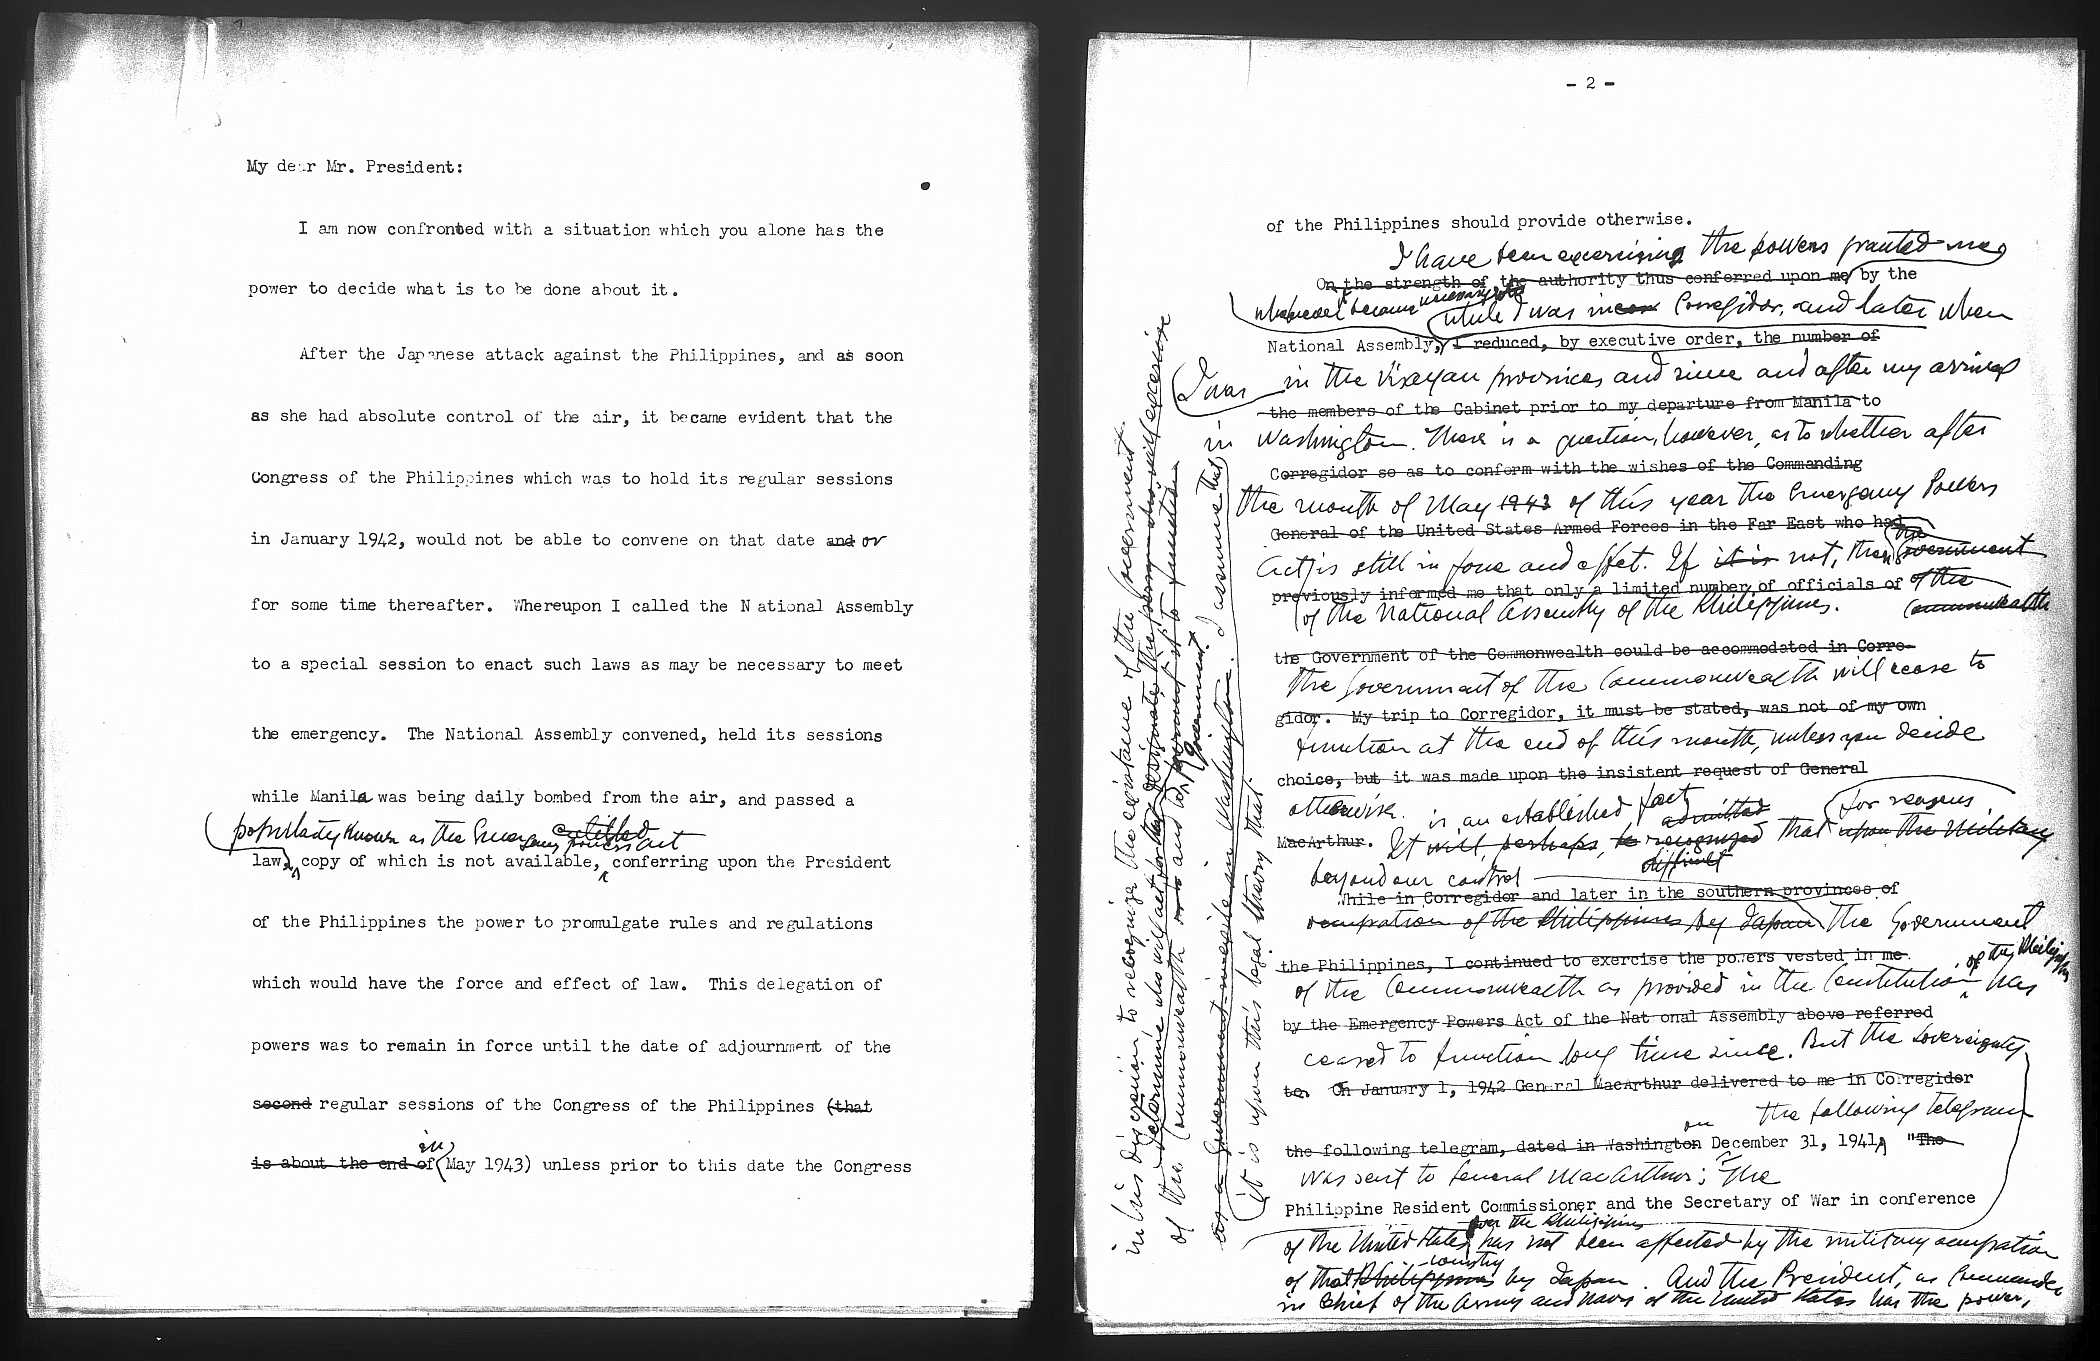 My dear Mr. President:
I am now confronted with a situation which you alone has the
power to decide what is to be done about it.
After the Japanese attack against the Philippines, and as soon
as she had absolute control of the air, it became evident that the
Congress of the Philippines which was to hold its regular sessions
in January 1942, would not be able to convene on that date and or
for some time thereafter. Whereupon I called the N ational Assembly
to a special session to enact such laws as may be necessary to meet
the emergency. The National Assembly convened, held its sessions
while Manila was being daily bombed from the air, and passed a
popularly known as the Emergency entitled powers act
law, copy of which is not available, conferring upon the President
of the Philippines the power to promulgate rules and regulations
which would have the force and effect of law. This delegation of
powers was to remain in force until the date of adjournment of the
second regular sessions of the Congress of the Philippines (that
in
is about the end of (May 1943) unless prior to this date the Congress
- 2 -
of the Philippines should provide otherwise.
I have been exercising the powers granted me
On the strength of the authority thus conferred upon me by the
whenever became necessary while I was in Corregidor, and later when
National Assembly, I reduced, by executive order, the number of
I was in the Visayan provinces and since and after my arrival
the members of the Cabinet prior to my departure from Manila to
in Washington. There is a question, however, as to whether after
Corregidor so as to conform with the wishes of the Commanding
the month of May 1943 of this year the Emergency Powers
General of the United States Armed Forces in the Far East who had
Act is still in force and effect. If it is not, then the Government
previously informed me that only a limited number of officials of of the
of the National Assembly of the Philippines. Commonwealth
the Government of the Commonwealth could be accommodated in Corre-
the Government of the Commonwealth will cease to
gidor. My trip to Corregidor, it must be stated, was not of my own
function at the end of this month, unless you decide
choice, but it was made upon the insistent request of General
otherwise. is an established fact admitted for reasons
MacArthur. It will, perhaps, be recognized that upon the Military
difficult
beyond our control
While in Corregidor and later in the southern provinces of
occupation of the Philippines by Japan the Government
the Philippines, I continued to exercise the powers vested in me
of the Philippines
of the Commonwealth as provided in the Constitution has
by the Emergency Powers Act of the Nat onal Assembly above referred
ceased to function long time since. But the sovereignty
to. On January 1, 1942 General MacArthur delivered to me in Corregidor
the following telegram
on
the following telegram, dated in Washington December 31, 1941, "The
was sent to General MacArthur; "The
Philippine Resident Commissioner and the Secretary of War in conference
over the Philippines
of the United States has not been affected by the military occupation
country
of that Philippines by Japan. And the President, as Commander
in Chief of the Army and Navy of the United States has the power,
in his discretion, to recognize the existence of the government
determine who will act for the designate the person who will exercise
of the Commonwealth and Government it to function
as a Government in exile in Washington. I assume that
it is upon this legal theory that